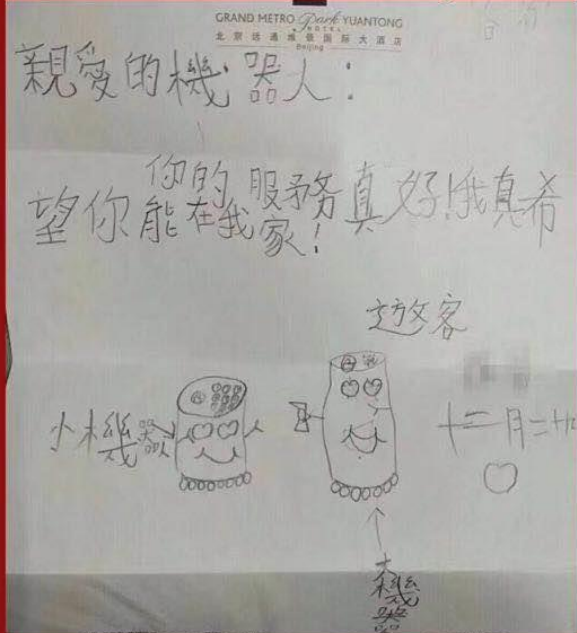 GRAND METRO Park YUANTONG
HOTEL
北京远通维景国际大酒店
Beijing
親愛的機器人！
你的服務真好！我真希
望你能在我家！
遊客
小機器人
十二月二十
大機器